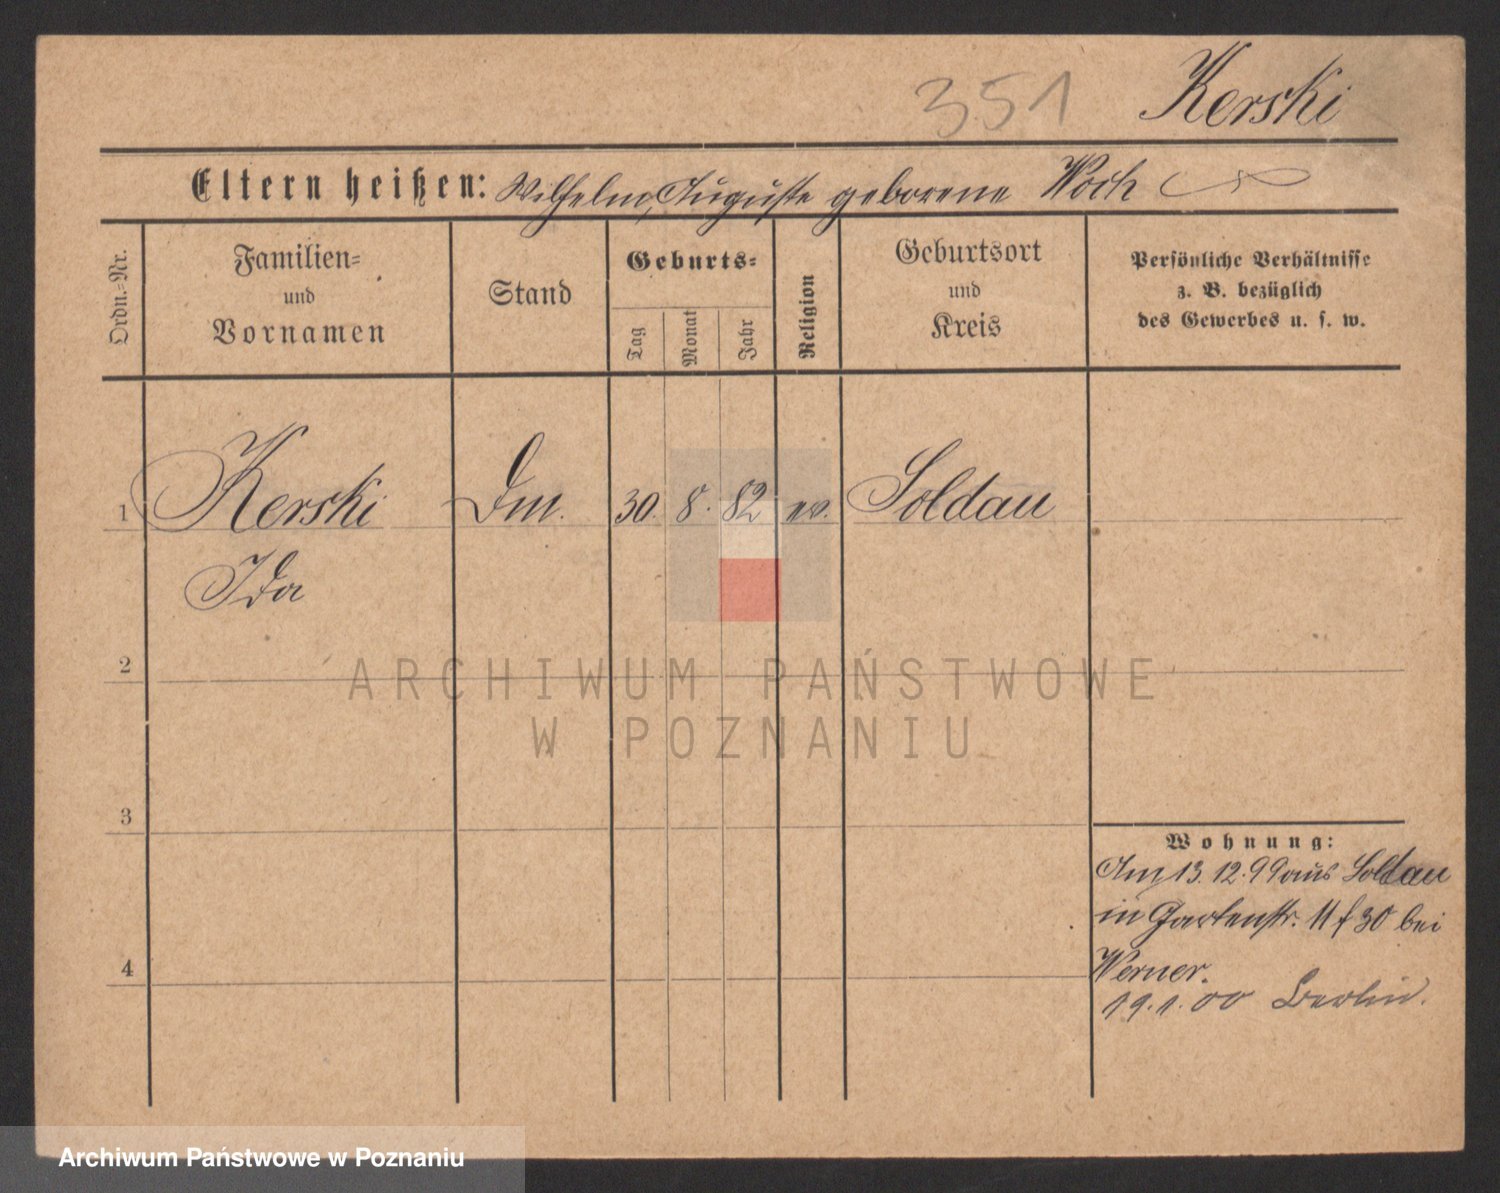 351 Kerski
Eltern heißen: Wilhelm, Auguste geborene Woch
Ordn.-Nr.
Familien-
und
Vornamen
Stand
Geburts-
Tag
Monat
Jahr
Religion
Geburtsort
und
Kreis
Persönliche Verhältnisse
z. B. bezüglich
des Gewerbes u. s. w.
1 Kerski Dm. 30. 8. 82 ev. Soldau
Ida
2
ARCHIWUM PAŃSTWOWE
W POZNANIU
3
Wohnung:
Am 13. 12. 99 aus Soldau
in Gartenstr. 11 f 30 bei
Werner.
4
19. 1. 00 Berlin.
Archiwum Państwowe w Poznaniu